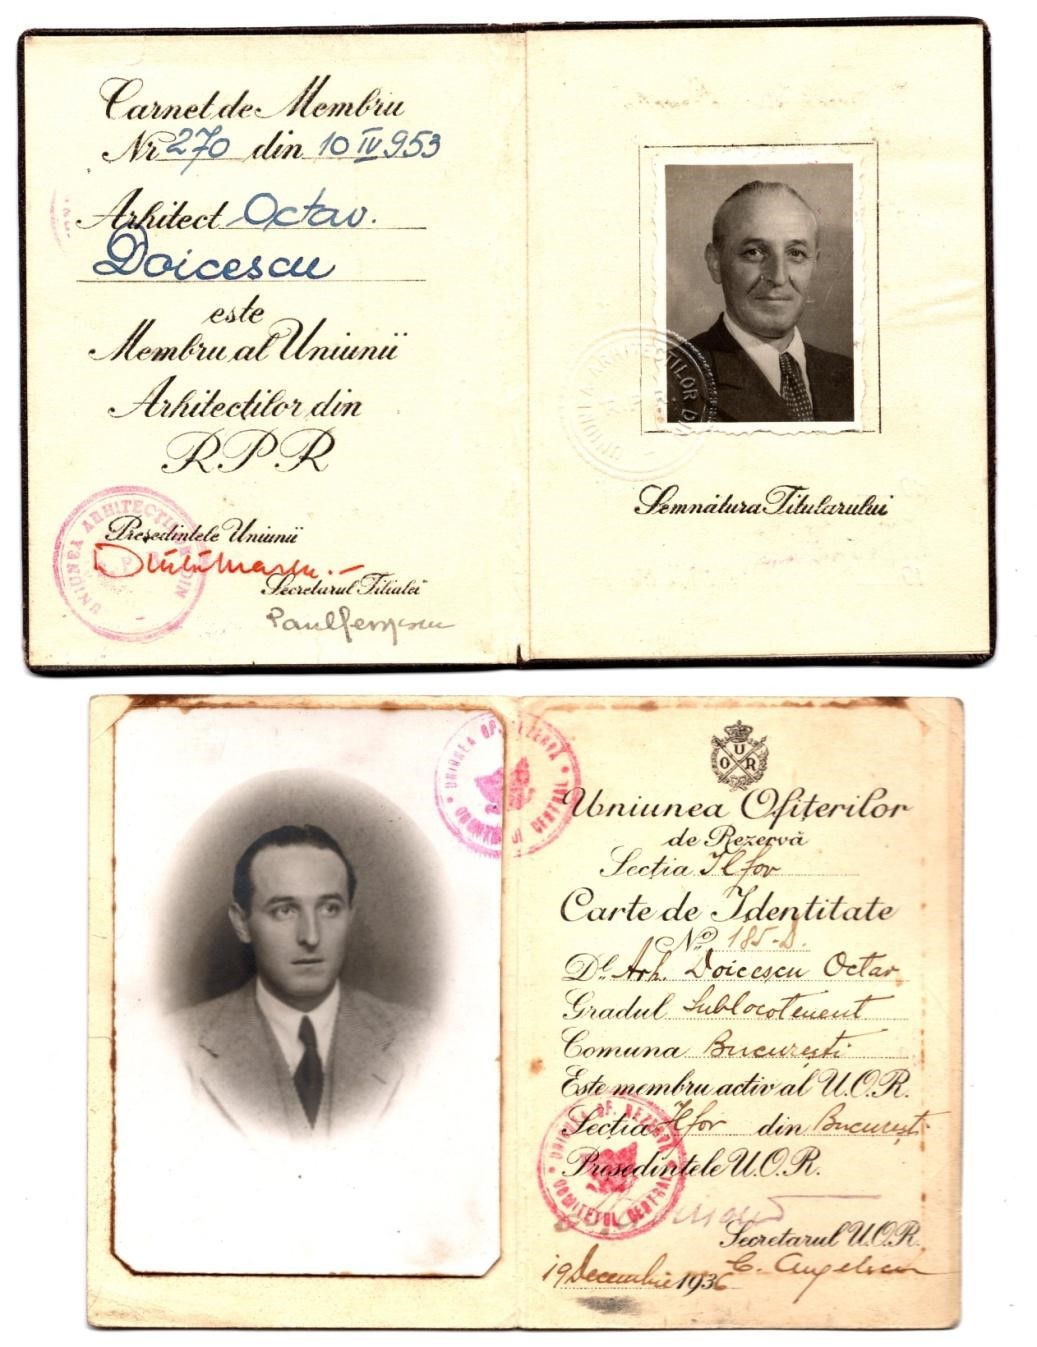 Carnet de Membru
Nr 270 din 10 IV 953
Arhitect Octav.
Doicescu
este
Membru al Uniunii
Arhitecților din
RPR
Președintele Uniunii
Secretarul Filialei
UNIUNEA ARHITECȚILOR DIN
UNIUNEA ARHITECȚILOR DIN
Semnătura Titularului
U
O R
Uniunea Ofițerilor
de Rezervă
Secția Ilfov
Carte de Identitate
No 185-D.
Dl. Arh. Doicescu Octav
Gradul Sublocotenent
Comuna București
Este membru activ al U.O.R.
Secția Ilfov din București
Președintele U.O.R.
Secretarul U.O.R.
19 Decembrie 1936 C. Angelescu
UNIUNEA OF. REZERVĂ
COMITETUL CENTRAL
UNIUNEA OF. REZERVĂ
COMITETUL CENTRAL